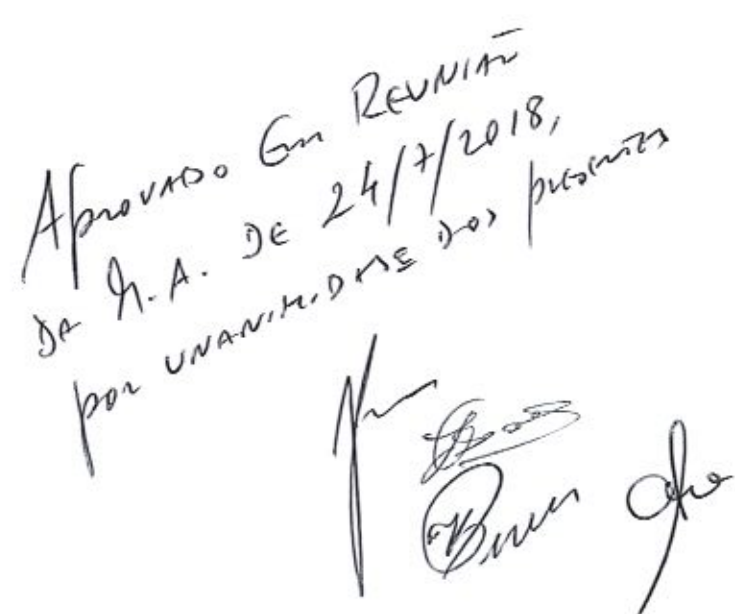 Aprovado Em REUNIÃO
DA M.A. DE 24/7/2018,
por UNANIMIDADE dos presentes